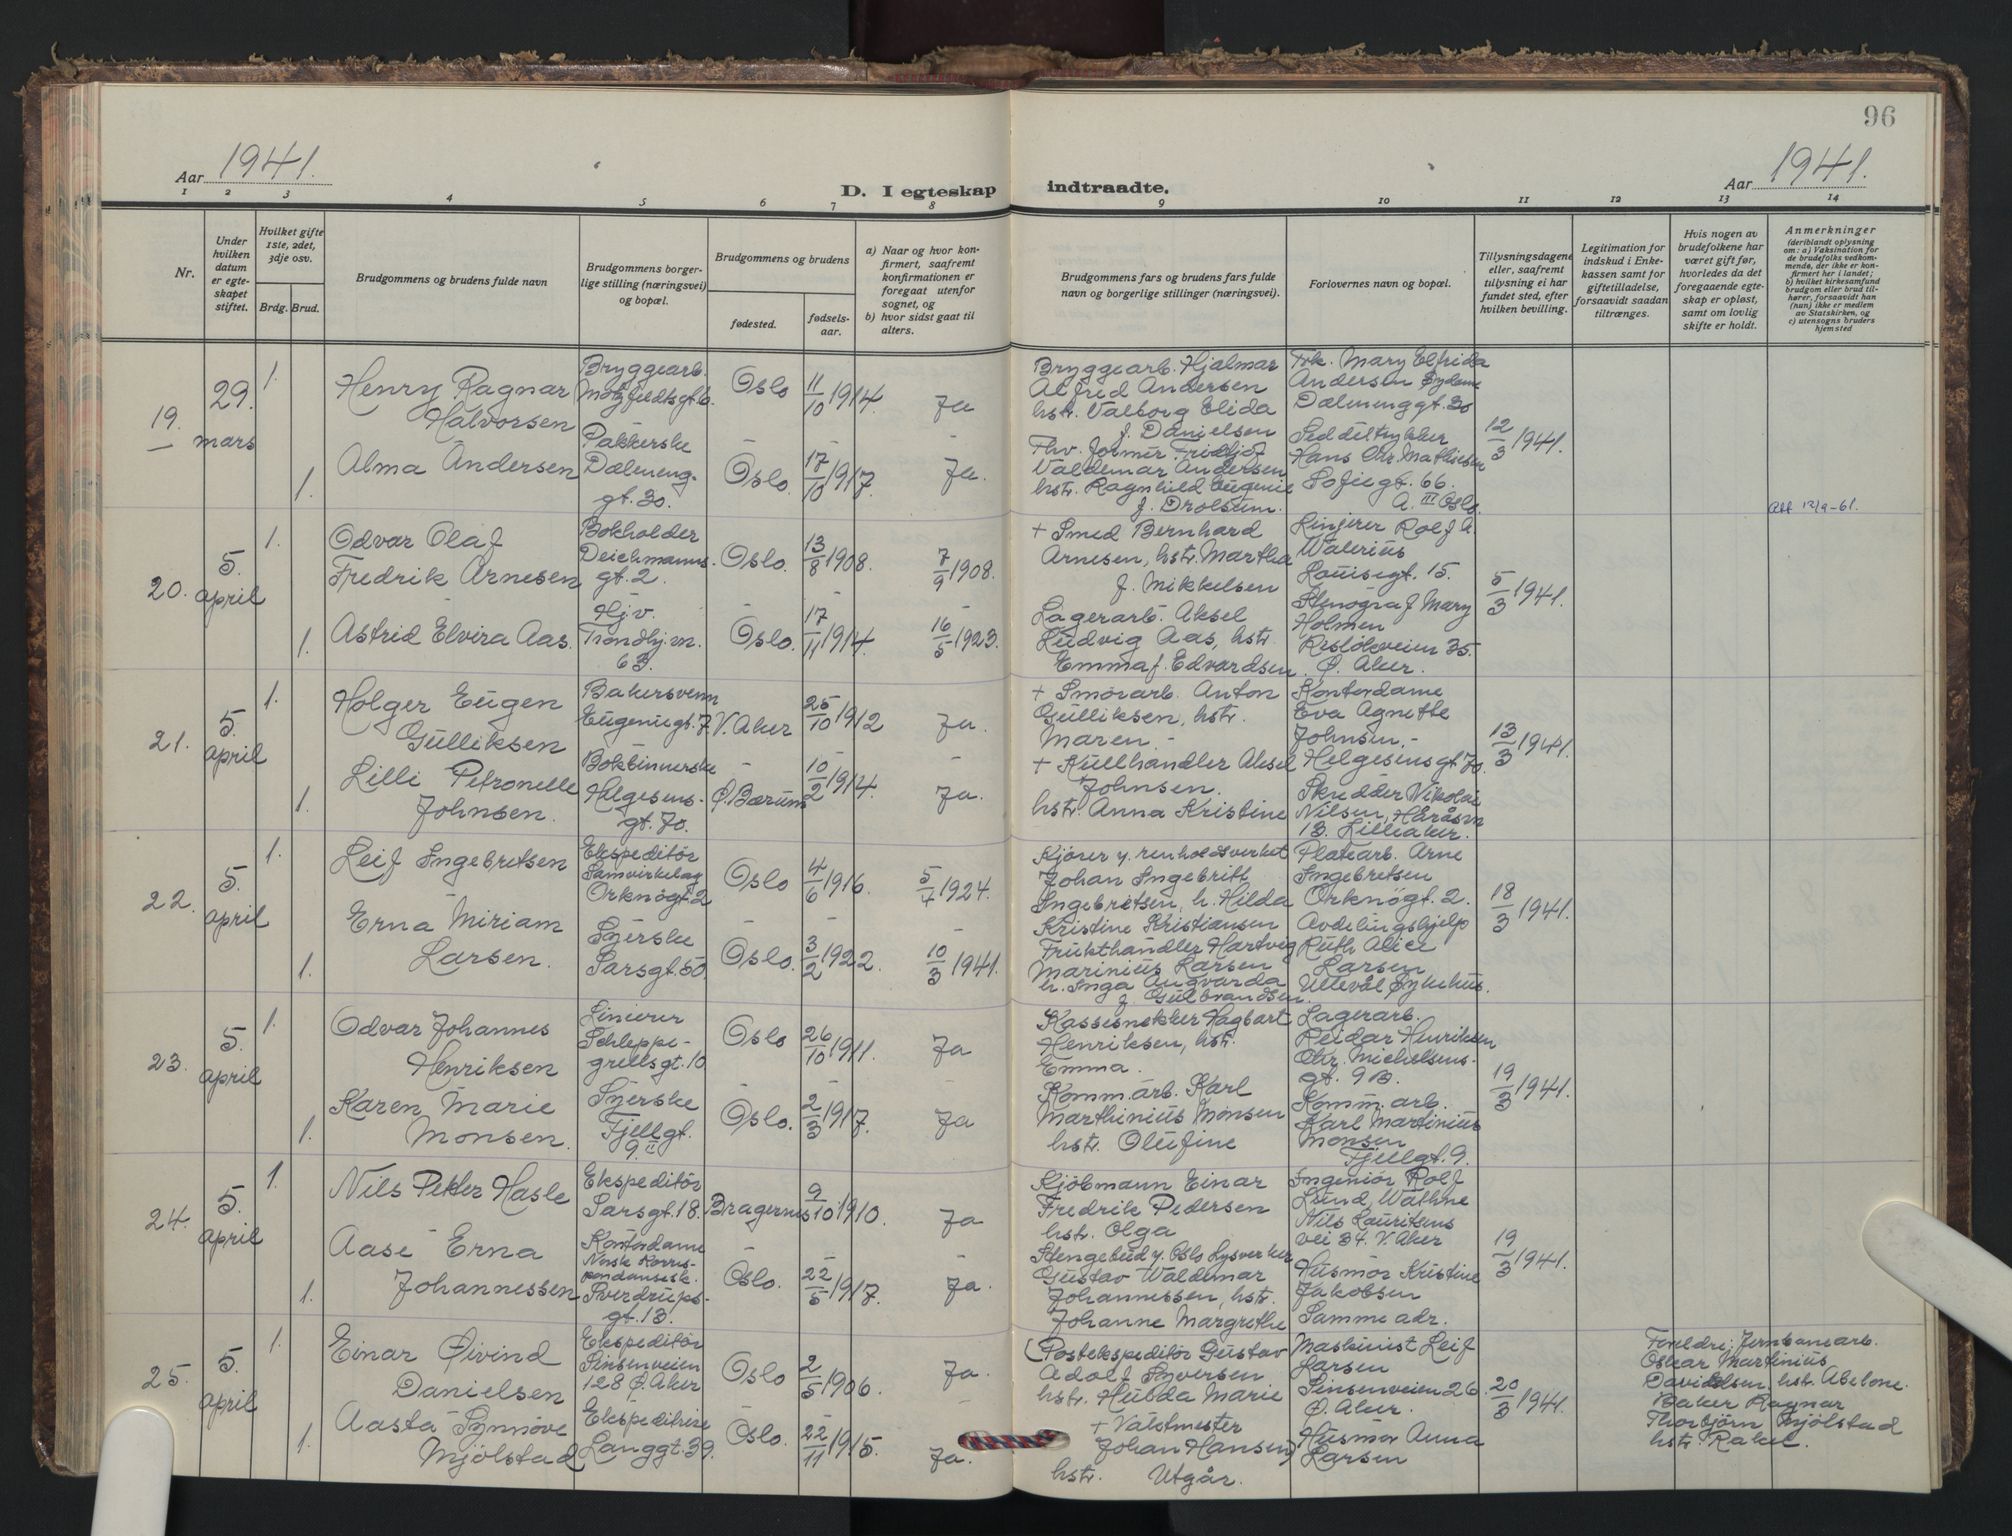 96
Aar 1941.
D. I egteskap indtraadte.
Aar 1941.
1 2 3 4 5 6 7 8 9 10 11 12 13 14
Nr.
Under hvilken datum er egteskapet stiftet.
Hvilket gifte 1ste, 2det, 3dje osv.
Brdg. Brud.
Brudgommens og brudens fulde navn
Brudgommens borgerlige stilling (næringsvei) og bopæl.
Brudgommens og brudens
fødested.
fødselsaar.
a) Naar og hvor konfirmert, saafremt konfirmationen er foregaat utenfor sognet, og
b) hvor sidst gaat til alters.
Brudgommens fars og brudens fars fulde navn og borgerlige stillinger (næringsvei).
Forlovernes navn og bopæl.
Tillysningsdagene eller, saafremt tillysning ei har fundet sted, efter hvilken bevilling.
Legitimation for indskud i Enkekassen samt for giftetilladelse, forsaavidt saadan tiltrænges.
Hvis nogen av brudefolkene har været gift før, hvorledes da det foregaaende egteskap er opløst, samt om lovlig skifte er holdt.
Anmerkninger
(deriblandt oplysning om: a) Vaksination for de brudefolks vedkommende, der ikke er konfirmert her i landet; b) hvilket kirkesamfund brudgom eller brud tilhører, forsaavidt han (hun) ikke er medlem av Statskirken, og c) utensogns bruders hjemsted
19.
29.
mars
1.
Henry Ragnar
Halvorsen
Bryggearb.
Motzfeldtsgt.6.
Oslo
11/10 1914.
Ja
Bryggearb. Hjalmar
Alfred Andersen
hstr. Valborg Elida
f. Danielsen
Frk. Mary Elfrida
Andersen
Dælenenggt. 30
12/3 1941.
1.
Alma Andersen
Pakkerske
Dæleneng-
gt. 30.
Oslo.
17/10 1917.
Ja.
Fhv. former Fridtjof
Valdemar Andersen
hstr. Ragnhild Eugenie
f. Drolsum.
Seddeltrykker
Hans Chr. Mathisen
Sofiegt. 66.
A. III Oslo.
Att 12/9-61.
20.
5.
april
1.
Odvar Olaf
Fredrik Arnesen
Bokholder
Deichmanns-
gt. 2.
Oslo.
13/8 1908.
7/9 1908.
+ Smed Bernhard
Arnesen, hstr. Martha
f. Mikkelsen
Linjerer Rolf A.
Walerius
Louisegt. 15.
5/3 1941.
1.
Astrid Elvira Aas.
Hj.v.
Trondhj.vn.
63.
Oslo.
17/11 1914.
16/5 1923.
Lagerarb. Aksel
Ludvig Aas, hstr.
Emma f. Edvardsen.
Stenograf Mary
Holmen
Risløkveien 35.
Ø. Aker.
21.
5.
april
1.
Holger Eugen
Gulliksen
Bakersvenn
Eugeniegt. 7.
V. Aker
25/10 1912
Ja.
+ Smørarb. Anton
Gulliksen, hstr.
Maren.-
Kontordame
Eva Agnethe
Johnsen.-
Helgesensgt 70.
13/3 1941.
1.
Lilli Petronelle
Johnsen.
Bokbinnerske
Helgesens-
gt. 70.
Ø. Bærum
10/2 1914.
Ja.
+ Kullhandler Aksel
Johnsen.
hstr. Anna Kristine
Skredder Nikolai
Nilsen, Håråsvn
13. Lilleaker.
22.
5.
april
1.
Leif Ingebretsen
Ekspeditør
Samvirkelag
Orknøgt. 2
Oslo
4/6 1916.
5/7 1924.
Kjører v. renholdsverket
Johan Ingebritt
Ingebretsen, h. Hilda
Kristine Kristiansen
Platearb. Arne
Ingebretsen
Orknøgt. 2.
18/3 1941.
1.
Erna Miriam
Larsen.
Syerske
Sarsgt. 50.
Oslo.
3/2 1922.
10/3 1941.
Frukthandler Hartvig
Marinius Larsen
h. Inga Augvarda
f. Gulbrandsen.
Avdelingshjelp
Ruth Alice
Larsen
Ullevål Sykehus.
23.
5.
april
1.
Odvar Johannes
Henriksen
Linierer
Schleppe-
grellsgt. 10
Oslo
26/10 1911.
Ja
Kassesnekker Hagbart
Henriksen, hstr.
Emma.
Lagerarb.
Reidar Henriksen
Chr. Michelsens-
gt. 9 B.
19/3 1941.
1.
Karen Marie
Monsen.
Syerske
Fjellgt.
9 II
Oslo.
2/3 1917.
Ja
Komm.arb. Karl
Marthinius Monsen
hstr. Olufine
Komm.arb.
Karl Martinius
Monsen
Fjellgt. 9.
24.
5.
april
1.
Nils Petter Hasle
Ekspeditør
Sarsgt. 18.
Bragernes
9/10 1910.
Ja
Kjøbmann Einar
Fredrik Pedersen
hstr. Olga
Ingeniør Rolf
Lund, Wathne
Nils Lauritsens
vei 34. V. Aker
19/3 1941.
1.
Aase Erna
Johannessen
Kontordame
Norsk Korres-
pondansesk.
Sverdrups-
gt. 13.
Oslo.
22/5 1917.
Ja.
Stengebud v. Oslo Lysverker
Gustav Waldemar
Johannessen, hstr.
Johanne Margrethe
Husmor Kristine
Jakobsen
Samme adr.
25.
5.
april
1.
Einar Øivind
Danielsen
Ekspeditør
Sinsenveien
128 Ø. Aker
Oslo
2/5 1906.
Ja.
(Postekspeditør Gustav
Adolf Syversen
hstr. Hulda Marie
Maskinist Leif
Larsen
Sinsenveien 26.
Ø. Aker.
20/3 1941.
Foreldre: Jernbanearb.
Oskar Martinius
Davidsen, hstr. Abelone.
Baker Ragnar
Thorbjørn Mjølstad
hstr. Rakel.
1.
Aasta Synnøve
Mjølstad
Ekspeditrise
Langgt. 39.
Oslo.
22/11 1915.
Ja.
+ Vaktmester
Johan Hansen)
hstr. Utgår.
Husmor Anna
Larsen